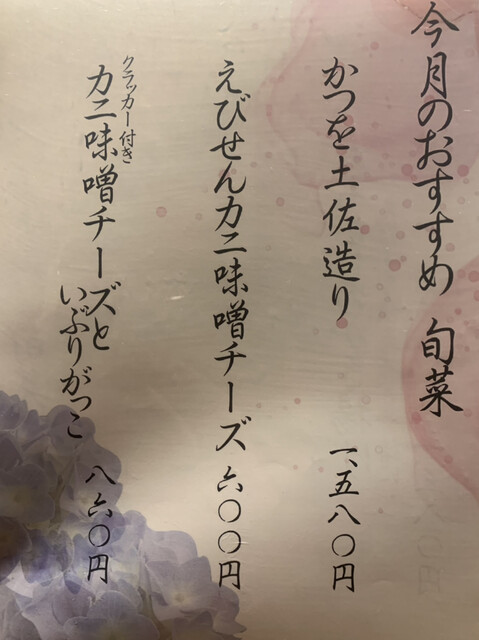 今月のおすすめ 旬菜
かつを土佐造り 一、五八〇円
えびせんカニ味噌チーズ 六〇〇円
クラッカー付き
カニ味噌チーズと
いぶりがっこ 八六〇円